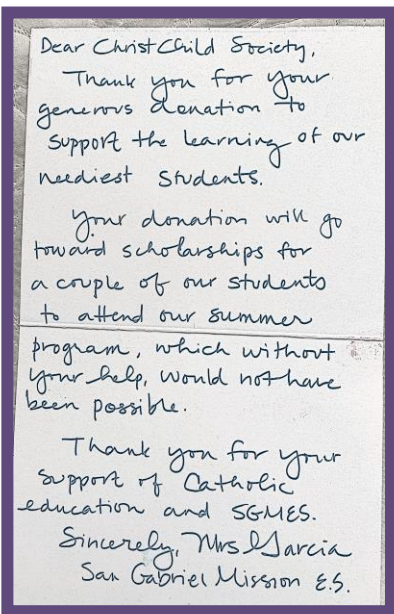 Dear Christ Child Society,
Thank you for your
generous donation to
support the learning of our
neediest students.
Your donation will go
toward scholarships for
a couple of our students
to attend our summer
program, which without
your help, would not have
been possible.
Thank you for your
support of Catholic
education and SGMES.
Sincerely, Mrs Garcia
San Gabriel Mission E.S.